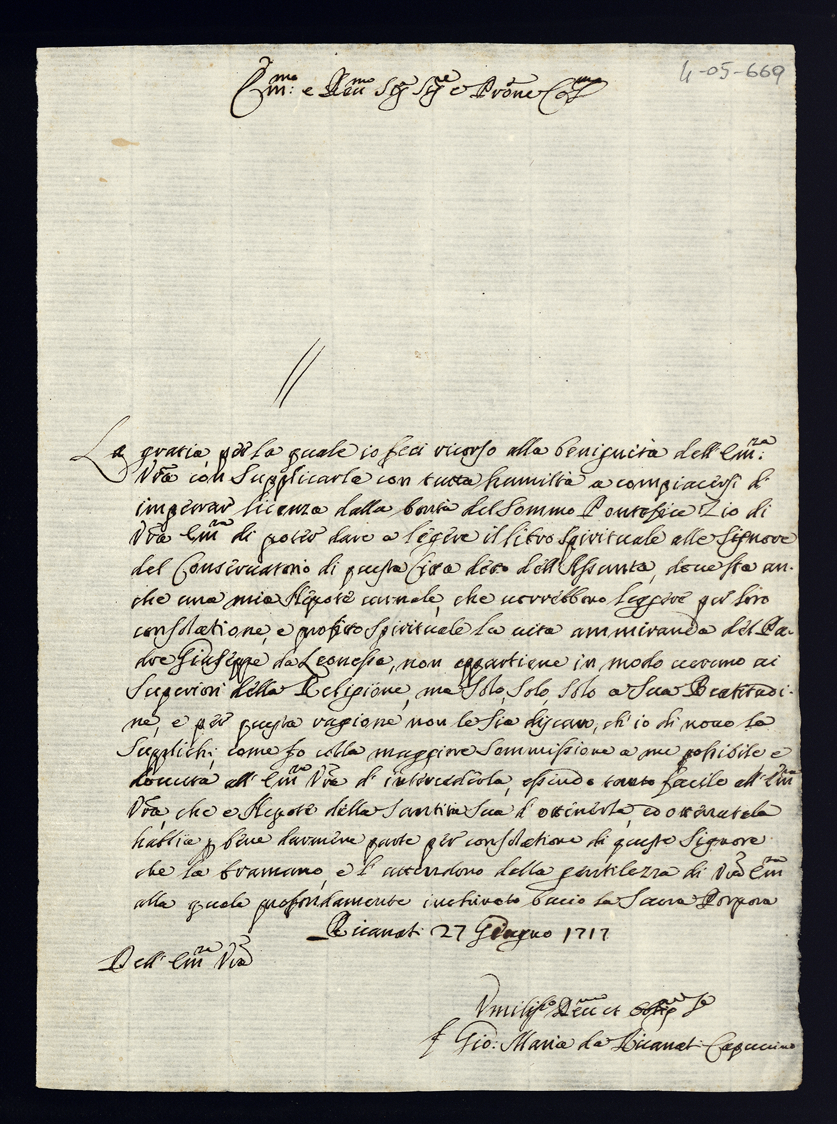 4-05-669
Em:mo e Rmo Sig Sig e Prōne Col
La gratia, per la quale io feci ricorso alla benignità dell'Em:za
Vra con supplicarla con tutta humiltà a compiacersi d'
impetrar licenza dalla bontà del Sommo Pontefice Zio di
Vra Emza di poter dare a legere il libro spirituale alle Signore
del Conservatorio di questa Città detto dell'Assunta, dove sta an-
che una mia Nepote carnale, che vorrebbero leggere per loro
consolatione, e profitto spirituale la vita ammiranda del Pa-
dre Giuseppe da Leonessa, non appartiene in modo veruno ai
Superiori della Religione, ma solo, solo solo a Sua Beatitudi-
ne, e per questa ragione non le sia discaro, ch'io di novo la
supplichi, come fo colla maggiore sommissione a me possibile e
dovuta all'Emza Vra d'intercederla, essendo tanto facile all'Em
Vra, che e Nepote della Santità Sua d'ottenerla, ed ottenutala
habbia p bene darmene parte per consolatione di queste Signore
che la bramano, e l'attendono dalla gentilezza di Vra Emza
alla quale profondamente inchinato bacio la Sacra Porpora
Ricanati 27 Giugno 1717
Dell'Emza Vra
Vmiliss:o Devmo et Se
f Gio: Maria da Ricanati Capuccino